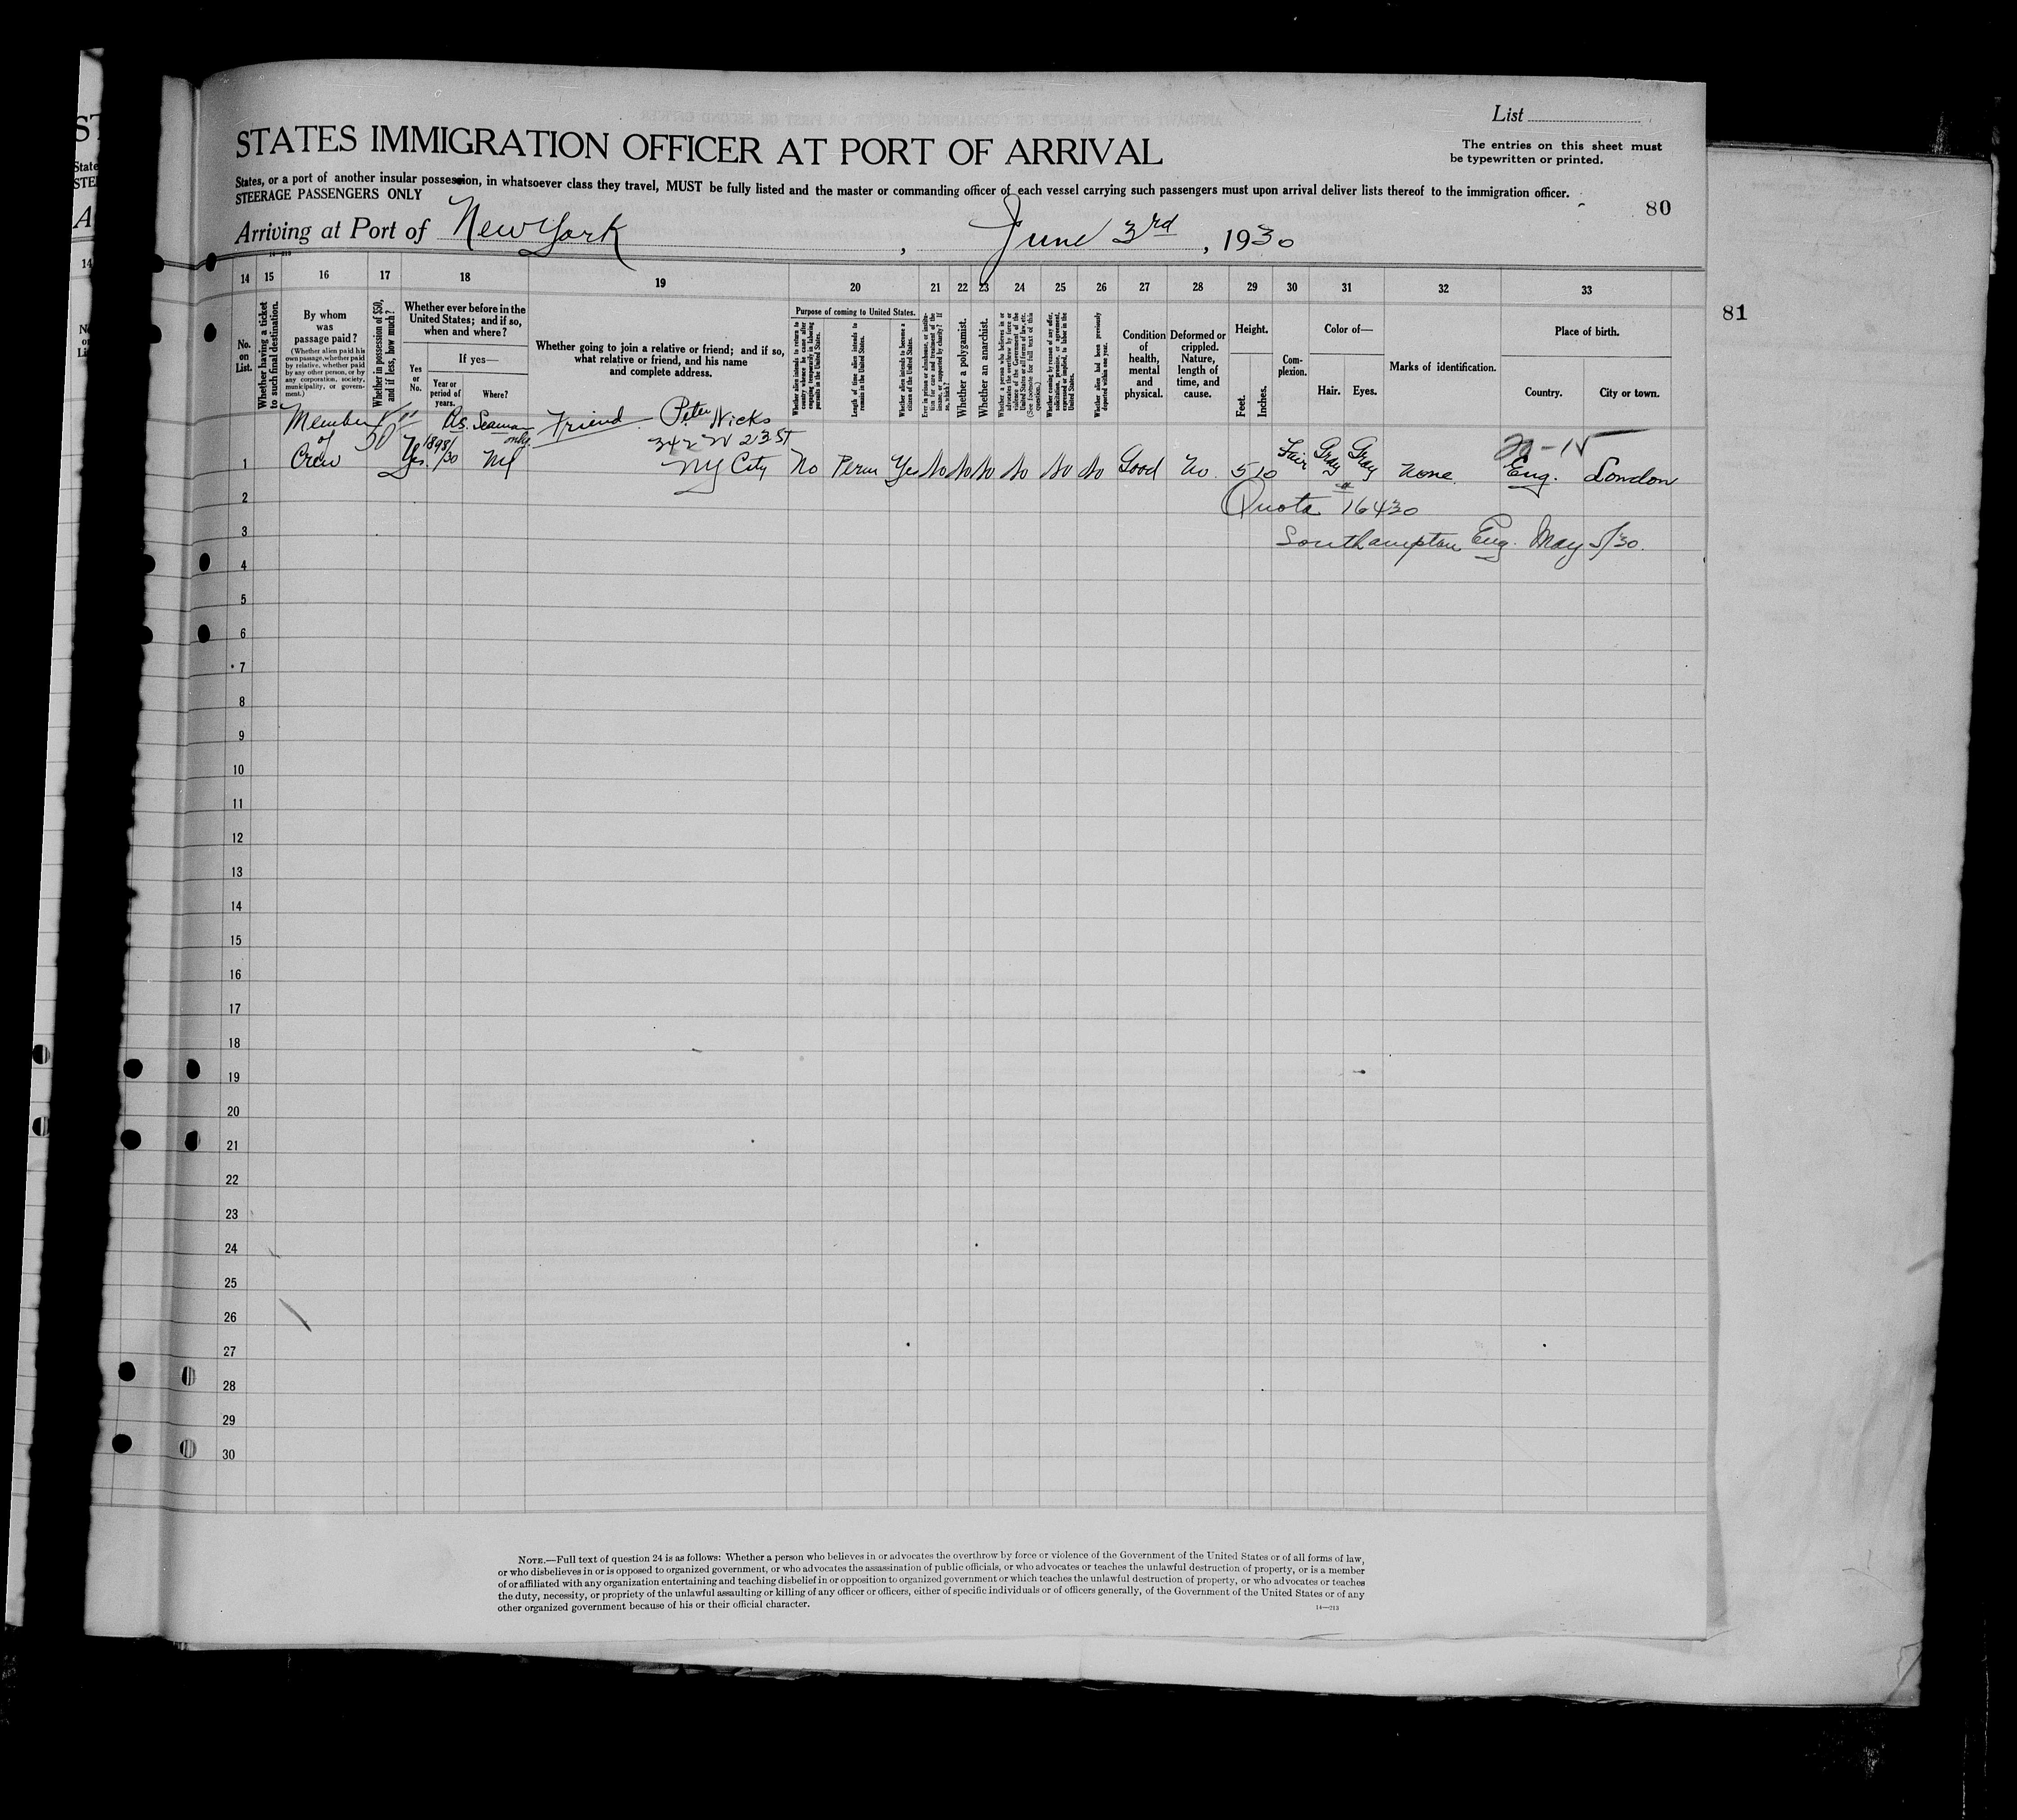 List
STATES IMMIGRATION OFFICER AT PORT OF ARRIVAL
The entries on this sheet must
be typewritten or printed.
States, or a port of another insular possession, in whatsoever class they travel, MUST be fully listed and the master or commanding officer of each vessel carrying such passengers must upon arrival deliver lists thereof to the immigration officer.
STEERAGE PASSENGERS ONLY
80
Arriving at Port of New York, June 3rd, 1930
14—213
14 15 16 17 18 19 20 21 22 23 24 25 26 27 28 29 30 31 32 33
81
No. on List.
Whether having a ticket to such final destination.
By whom was passage paid?
(Whether alien paid his own passage, whether paid by relative, whether paid by any other person, or by any corporation, society, municipality, or government.)
Whether in possession of $50, and if less, how much?
Whether ever before in the United States; and if so, when and where?
Yes or No.
If yes—
Year or period of years.
Where?
Whether going to join a relative or friend; and if so, what relative or friend, and his name and complete address.
Purpose of coming to United States.
Whether alien intends to return to country whence he came after engaging temporarily in laboring pursuits in the United States.
Length of time alien intends to remain in the United States.
Whether alien intends to become a citizen of the United States.
Ever in prison or almshouse, or institution for care and treatment of the insane, or supported by charity? If so, which?
Whether a polygamist.
Whether an anarchist.
Whether a person who believes in or advocates the overthrow by force or violence of the Government of the United States or all forms of law, etc. (See footnote for full text of this question.)
Whether coming by reason of any offer, solicitation, promise, or agreement, expressed or implied, to labor in the United States.
Whether alien had been previously deported within one year.
Condition of health, mental and physical.
Deformed or crippled. Nature, length of time, and cause.
Height.
Feet.
Inches.
Complexion.
Color of—
Hair.
Eyes.
Marks of identification.
Place of birth.
Country.
City or town.
Member As Seaman only Friend Peter Hicks
of 50 1898/ 342 W 23 St 20-15
1 Crew Yes. /30 NY NY City No Perm Yes No No No No No No Good No. 5 10 Fair Gray Gray None. Eng. London
2 Quota # 16430
3 Southampton Eng. May 5/30.
4
5
6
7
8
9
10
11
12
13
14
15
16
17
18
19
20
21
22
23
24
25
26
27
28
29
30
NOTE.—Full text of question 24 is as follows: Whether a person who believes in or advocates the overthrow by force or violence of the Government of the United States or of all forms of law,
or who disbelieves in or is opposed to organized government, or who advocates the assassination of public officials, or who advocates or teaches the unlawful destruction of property, or is a member
of or affiliated with any organization entertaining and teaching disbelief in or opposition to organized government or which teaches the unlawful destruction of property, or who advocates or teaches
the duty, necessity, or propriety of the unlawful assaulting or killing of any officer or officers, either of specific individuals or of officers generally, of the Government of the United States or of any
other organized government because of his or their official character.
14—213